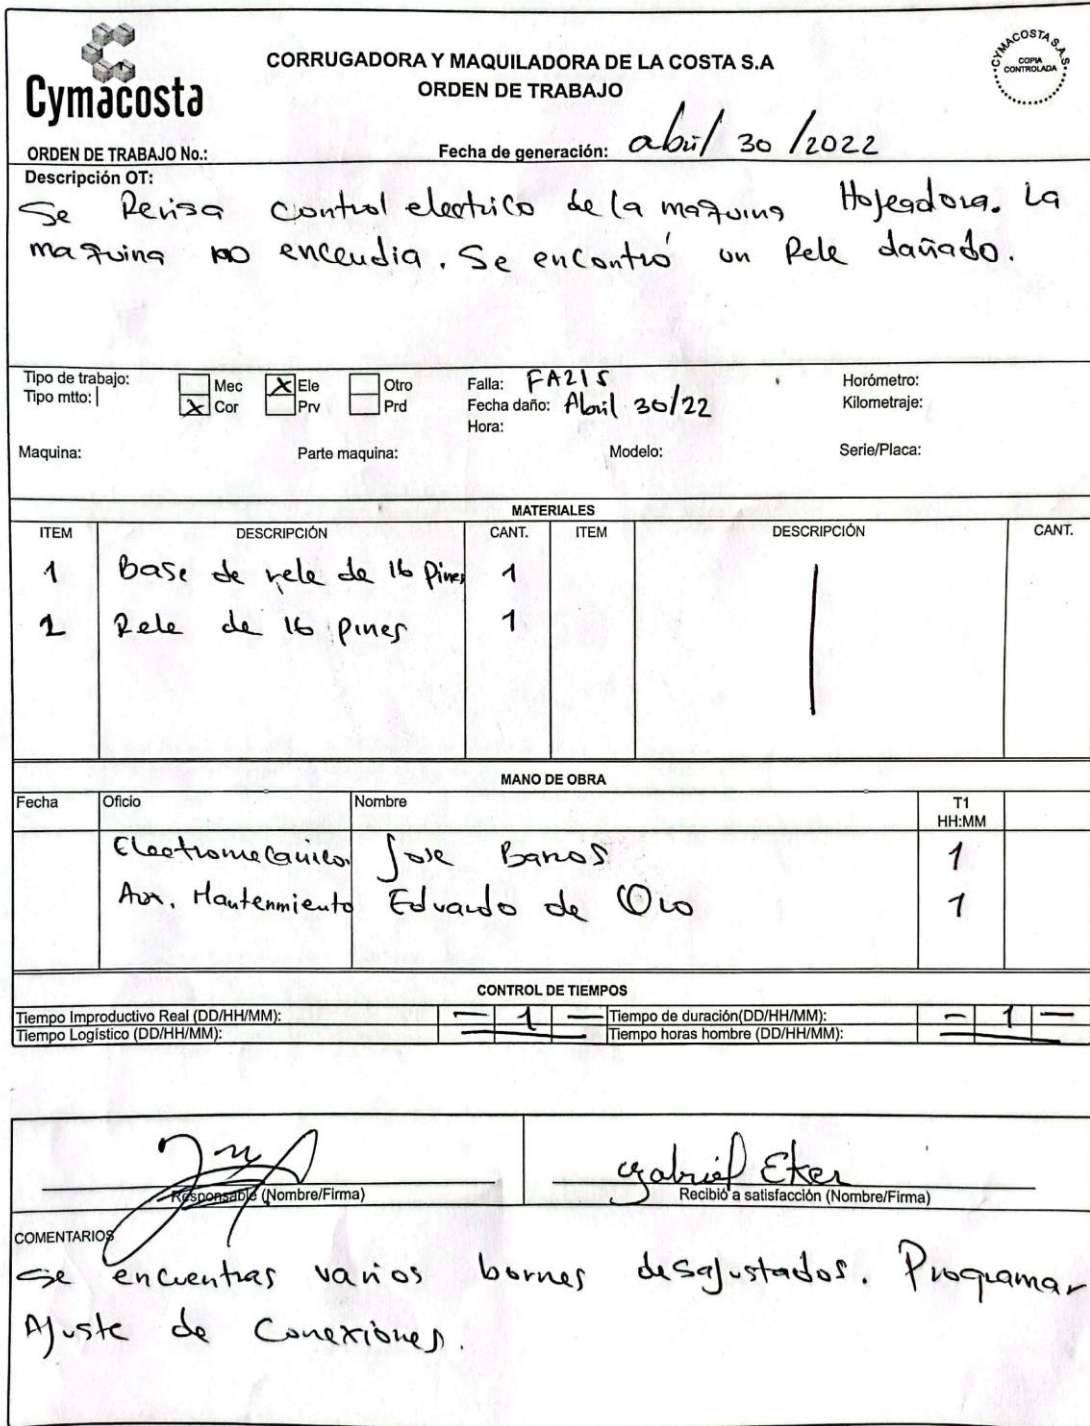 Cymacosta
CORRUGADORA Y MAQUILADORA DE LA COSTA S.A
ORDEN DE TRABAJO
CYMACOSTA S.A.S.
COPIA
CONTROLADA
ORDEN DE TRABAJO No.:
Fecha de generación: abril 30 /2022
Descripción OT:
Se Revisa control electrico de la maquina Hojeadora. La
maquina no encendia. Se encontró un Rele dañado.
Tipo de trabajo: Mec X Ele Otro Falla: FA215 Horómetro:
Tipo mtto: X Cor Prv Prd Fecha daño: Abril 30/22 Kilometraje:
Hora:
Maquina: Parte maquina: Modelo: Serie/Placa:
MATERIALES
ITEM DESCRIPCIÓN CANT. ITEM DESCRIPCIÓN CANT.
1 Base de rele de 16 Pines 1
2 Rele de 16 pines 1
MANO DE OBRA
Fecha Oficio Nombre T1
HH:MM
Electromecanico Jose Barros 1
Aux. Mantenmiento Eduardo de Oro 1
CONTROL DE TIEMPOS
Tiempo Improductivo Real (DD/HH/MM): — 1 — Tiempo de duración(DD/HH/MM): — 1 —
Tiempo Logístico (DD/HH/MM): Tiempo horas hombre (DD/HH/MM):
Gabriel Eker
Responsable (Nombre/Firma) Recibió a satisfacción (Nombre/Firma)
COMENTARIOS
Se encuentras varios bornes desajustados. Programar
Ajuste de Conexiones.